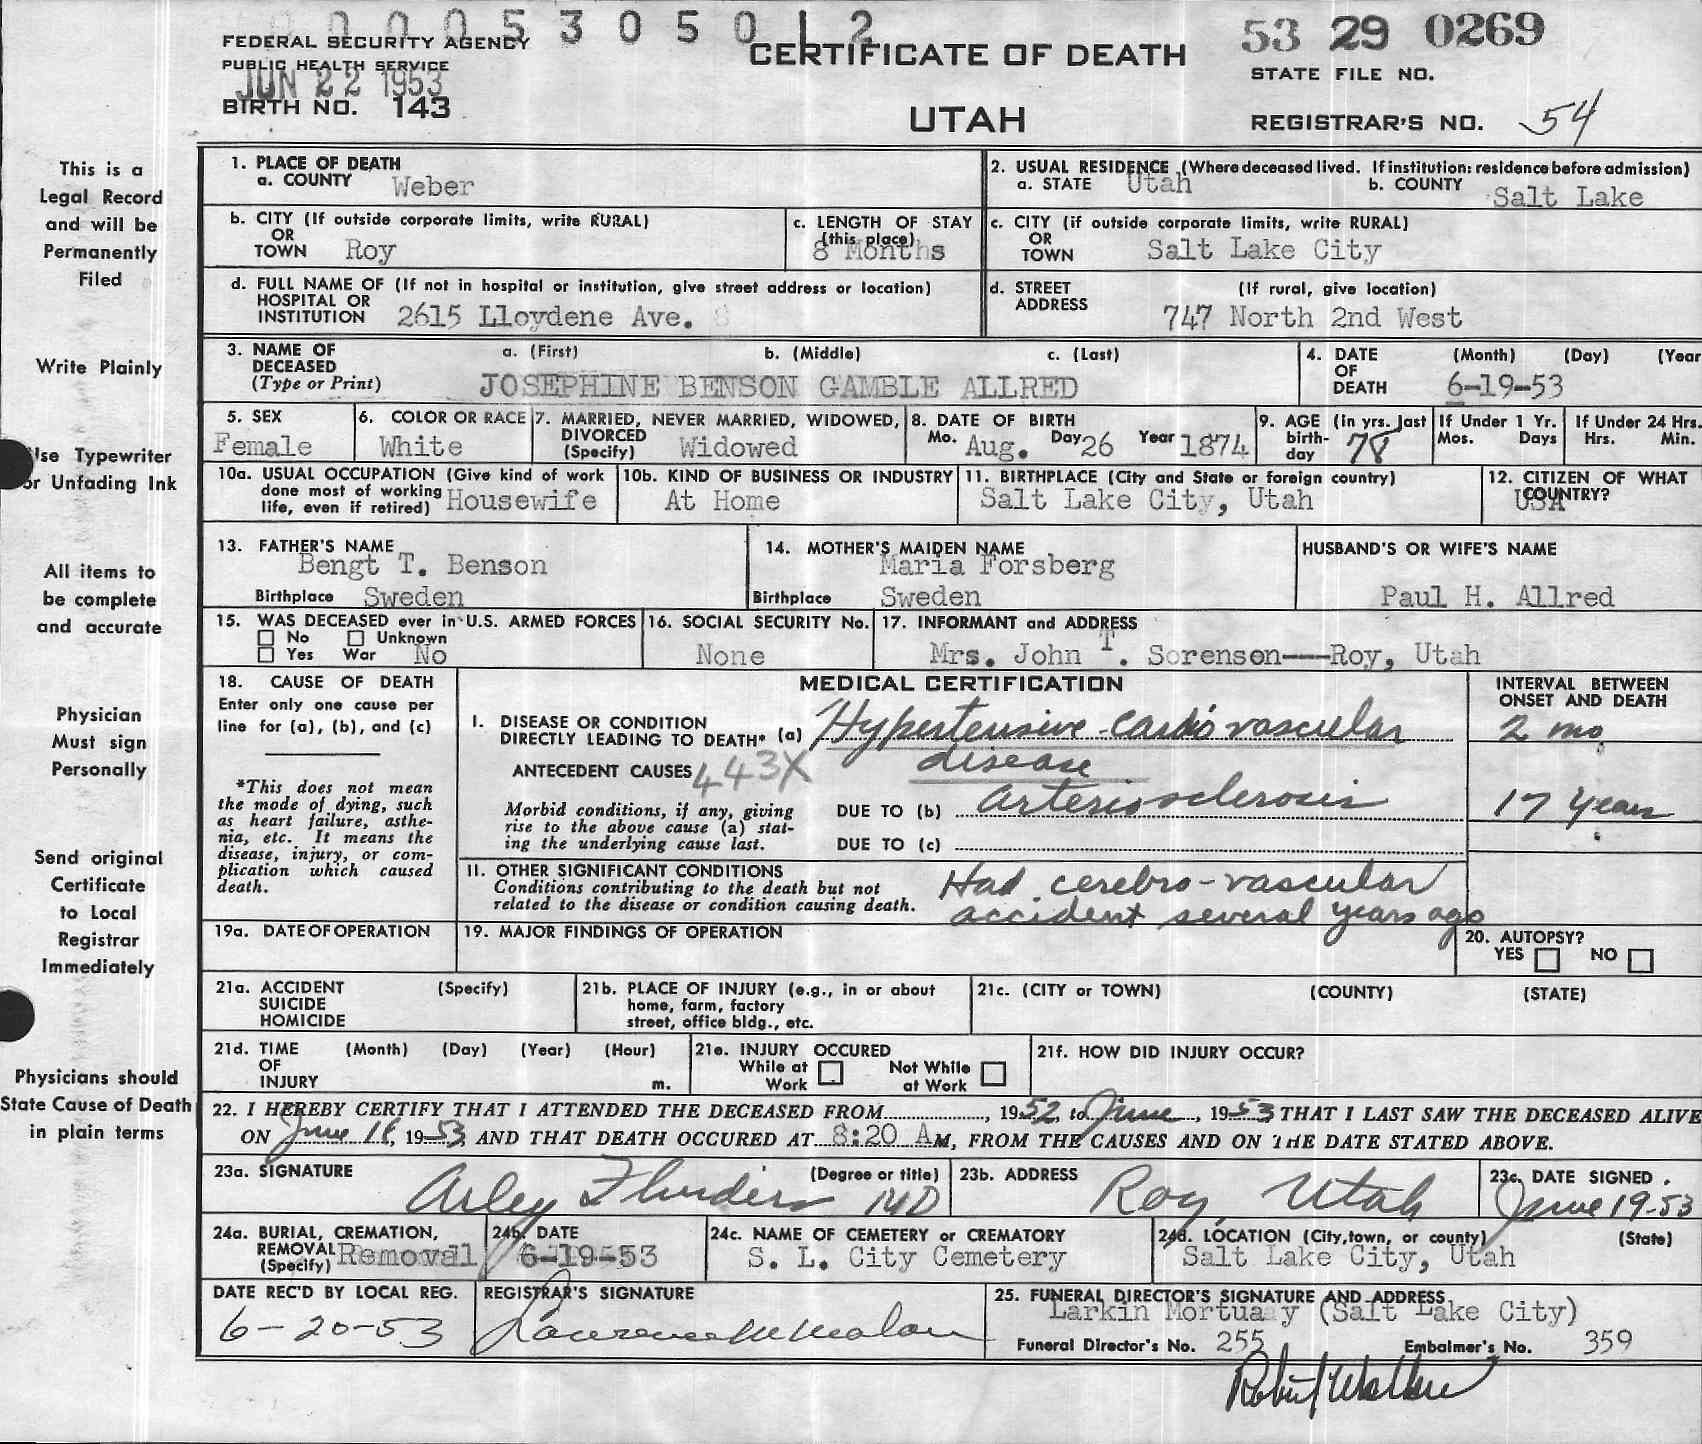 0 0 0 0 5 3 0 5 0 1 2
FEDERAL SECURITY AGENCY
PUBLIC HEALTH SERVICE
JUN 22 1953
BIRTH NO. 143
CERTIFICATE OF DEATH
UTAH
53 29 0269
STATE FILE NO.
REGISTRAR'S NO. 54
This is a
Legal Record
and will be
Permanently
Filed
Write Plainly
Use Typewriter
or Unfading Ink
All items to
be complete
and accurate
Physician
Must sign
Personally
Send original
Certificate
to Local
Registrar
Immediately
Physicians should
State Cause of Death
in plain terms
1. PLACE OF DEATH
a. COUNTY Weber
2. USUAL RESIDENCE (Where deceased lived. If institution: residence before admission)
a. STATE Utah b. COUNTY Salt Lake
b. CITY (If outside corporate limits, write RURAL)
OR
TOWN Roy
c. LENGTH OF STAY
(this place)
8 Months
c. CITY (if outside corporate limits, write RURAL)
OR
TOWN Salt Lake City
d. FULL NAME OF (If not in hospital or institution, give street address or location)
HOSPITAL OR
INSTITUTION 2615 Lloydene Ave.
d. STREET (If rural, give location)
ADDRESS
747 North 2nd West
3. NAME OF a. (First) b. (Middle) c. (Last)
DECEASED
(Type or Print) JOSEPHINE BENSON GAMBLE ALLRED
4. DATE (Month) (Day) (Year
OF
DEATH 6-19-53
5. SEX
Female
6. COLOR OR RACE
White
7. MARRIED, NEVER MARRIED, WIDOWED,
DIVORCED
(Specify) Widowed
8. DATE OF BIRTH
Mo. Aug. Day 26 Year 1874
9. AGE (in yrs. last
birth-
day 78
If Under 1 Yr.
Mos. Days
If Under 24 Hrs.
Hrs. Min.
10a. USUAL OCCUPATION (Give kind of work
done most of working
life, even if retired) Housewife
10b. KIND OF BUSINESS OR INDUSTRY
At Home
11. BIRTHPLACE (City and State or foreign country)
Salt Lake City, Utah
12. CITIZEN OF WHAT
COUNTRY?
USA
13. FATHER'S NAME
Bengt T. Benson
Birthplace Sweden
14. MOTHER'S MAIDEN NAME
Maria Forsberg
Birthplace Sweden
HUSBAND'S OR WIFE'S NAME
Paul H. Allred
15. WAS DECEASED ever in U.S. ARMED FORCES
No Unknown
Yes War No
16. SOCIAL SECURITY No.
None
17. INFORMANT and ADDRESS
Mrs. John T. Sorenson---Roy, Utah
18. CAUSE OF DEATH
Enter only one cause per
line for (a), (b), and (c)
*This does not mean
the mode of dying, such
as heart failure, asthe-
nia, etc. It means the
disease, injury, or com-
plication which caused
death.
MEDICAL CERTIFICATION
INTERVAL BETWEEN
ONSET AND DEATH
I. DISEASE OR CONDITION
DIRECTLY LEADING TO DEATH* (a) Hypertensive cardiovascular 2 mo
disease
ANTECEDENT CAUSES 443X
Morbid conditions, if any, giving
rise to the above cause (a) stat-
ing the underlying cause last.
DUE TO (b) arteriosclerosis 17 years
DUE TO (c)
11. OTHER SIGNIFICANT CONDITIONS
Conditions contributing to the death but not
related to the disease or condition causing death.
Had cerebro-vascular
accident several years ago
19a. DATE OF OPERATION
19. MAJOR FINDINGS OF OPERATION
20. AUTOPSY?
YES NO
21a. ACCIDENT (Specify)
SUICIDE
HOMICIDE
21b. PLACE OF INJURY (e.g., in or about
home, farm, factory
street, office bldg., etc.
21c. (CITY or TOWN) (COUNTY) (STATE)
21d. TIME (Month) (Day) (Year) (Hour)
OF
INJURY m.
21e. INJURY OCCURED
While at Work Not While at Work
21f. HOW DID INJURY OCCUR?
22. I HEREBY CERTIFY THAT I ATTENDED THE DECEASED FROM , 1952, to June , 1953 THAT I LAST SAW THE DECEASED ALIVE
ON June 18, 1953 AND THAT DEATH OCCURED AT 8:20 AM, FROM THE CAUSES AND ON THE DATE STATED ABOVE.
23a. SIGNATURE (Degree or title)
Arley Flinders MD
23b. ADDRESS
Roy, Utah
23c. DATE SIGNED
June 19-53
24a. BURIAL, CREMATION,
REMOVAL
(Specify) Removal
24b. DATE
6-19-53
24c. NAME OF CEMETERY or CREMATORY
S. L. City Cemetery
24d. LOCATION (City, town, or county) (State)
Salt Lake City, Utah
DATE REC'D BY LOCAL REG.
6-20-53
REGISTRAR'S SIGNATURE
Lawrence M Malan
25. FUNERAL DIRECTOR'S SIGNATURE AND ADDRESS
Larkin Mortuary (Salt Lake City)
Funeral Director's No. 255 Embalmer's No. 359